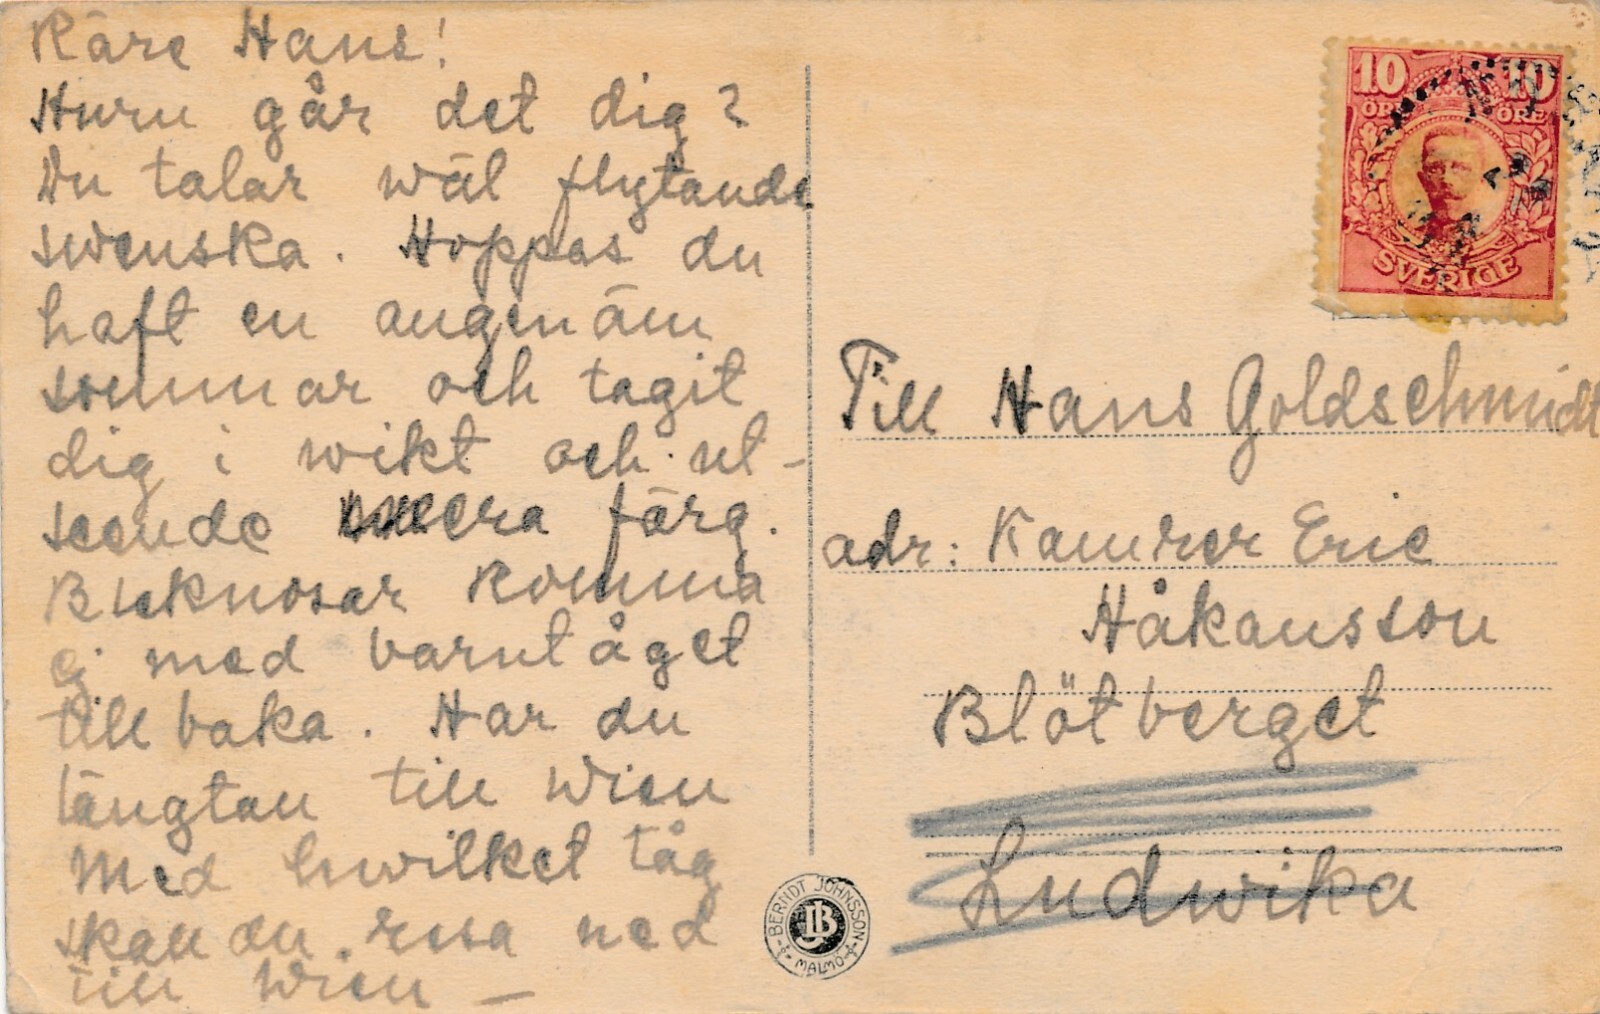 Käre Hans!
Huru går det dig?
Du talar wäl flytande
swenska. Hoppas du
haft en angenäm
sommar och tagit
dig i wikt och ut-
seende färg.
Bleknosar komma
ej med barntåget
tillbaka. Har du
längtan till Wien
Med hwilket tåg
skall du resa ned
till Wien —
10 10
ÖRE ÖRE
SVERIGE
Till Hans Goldschmidt
adr: Kamrer Eric
Håkansson
Blötberget
Ludwika
BERNDT JOHNSSON
JB
MALMÖ